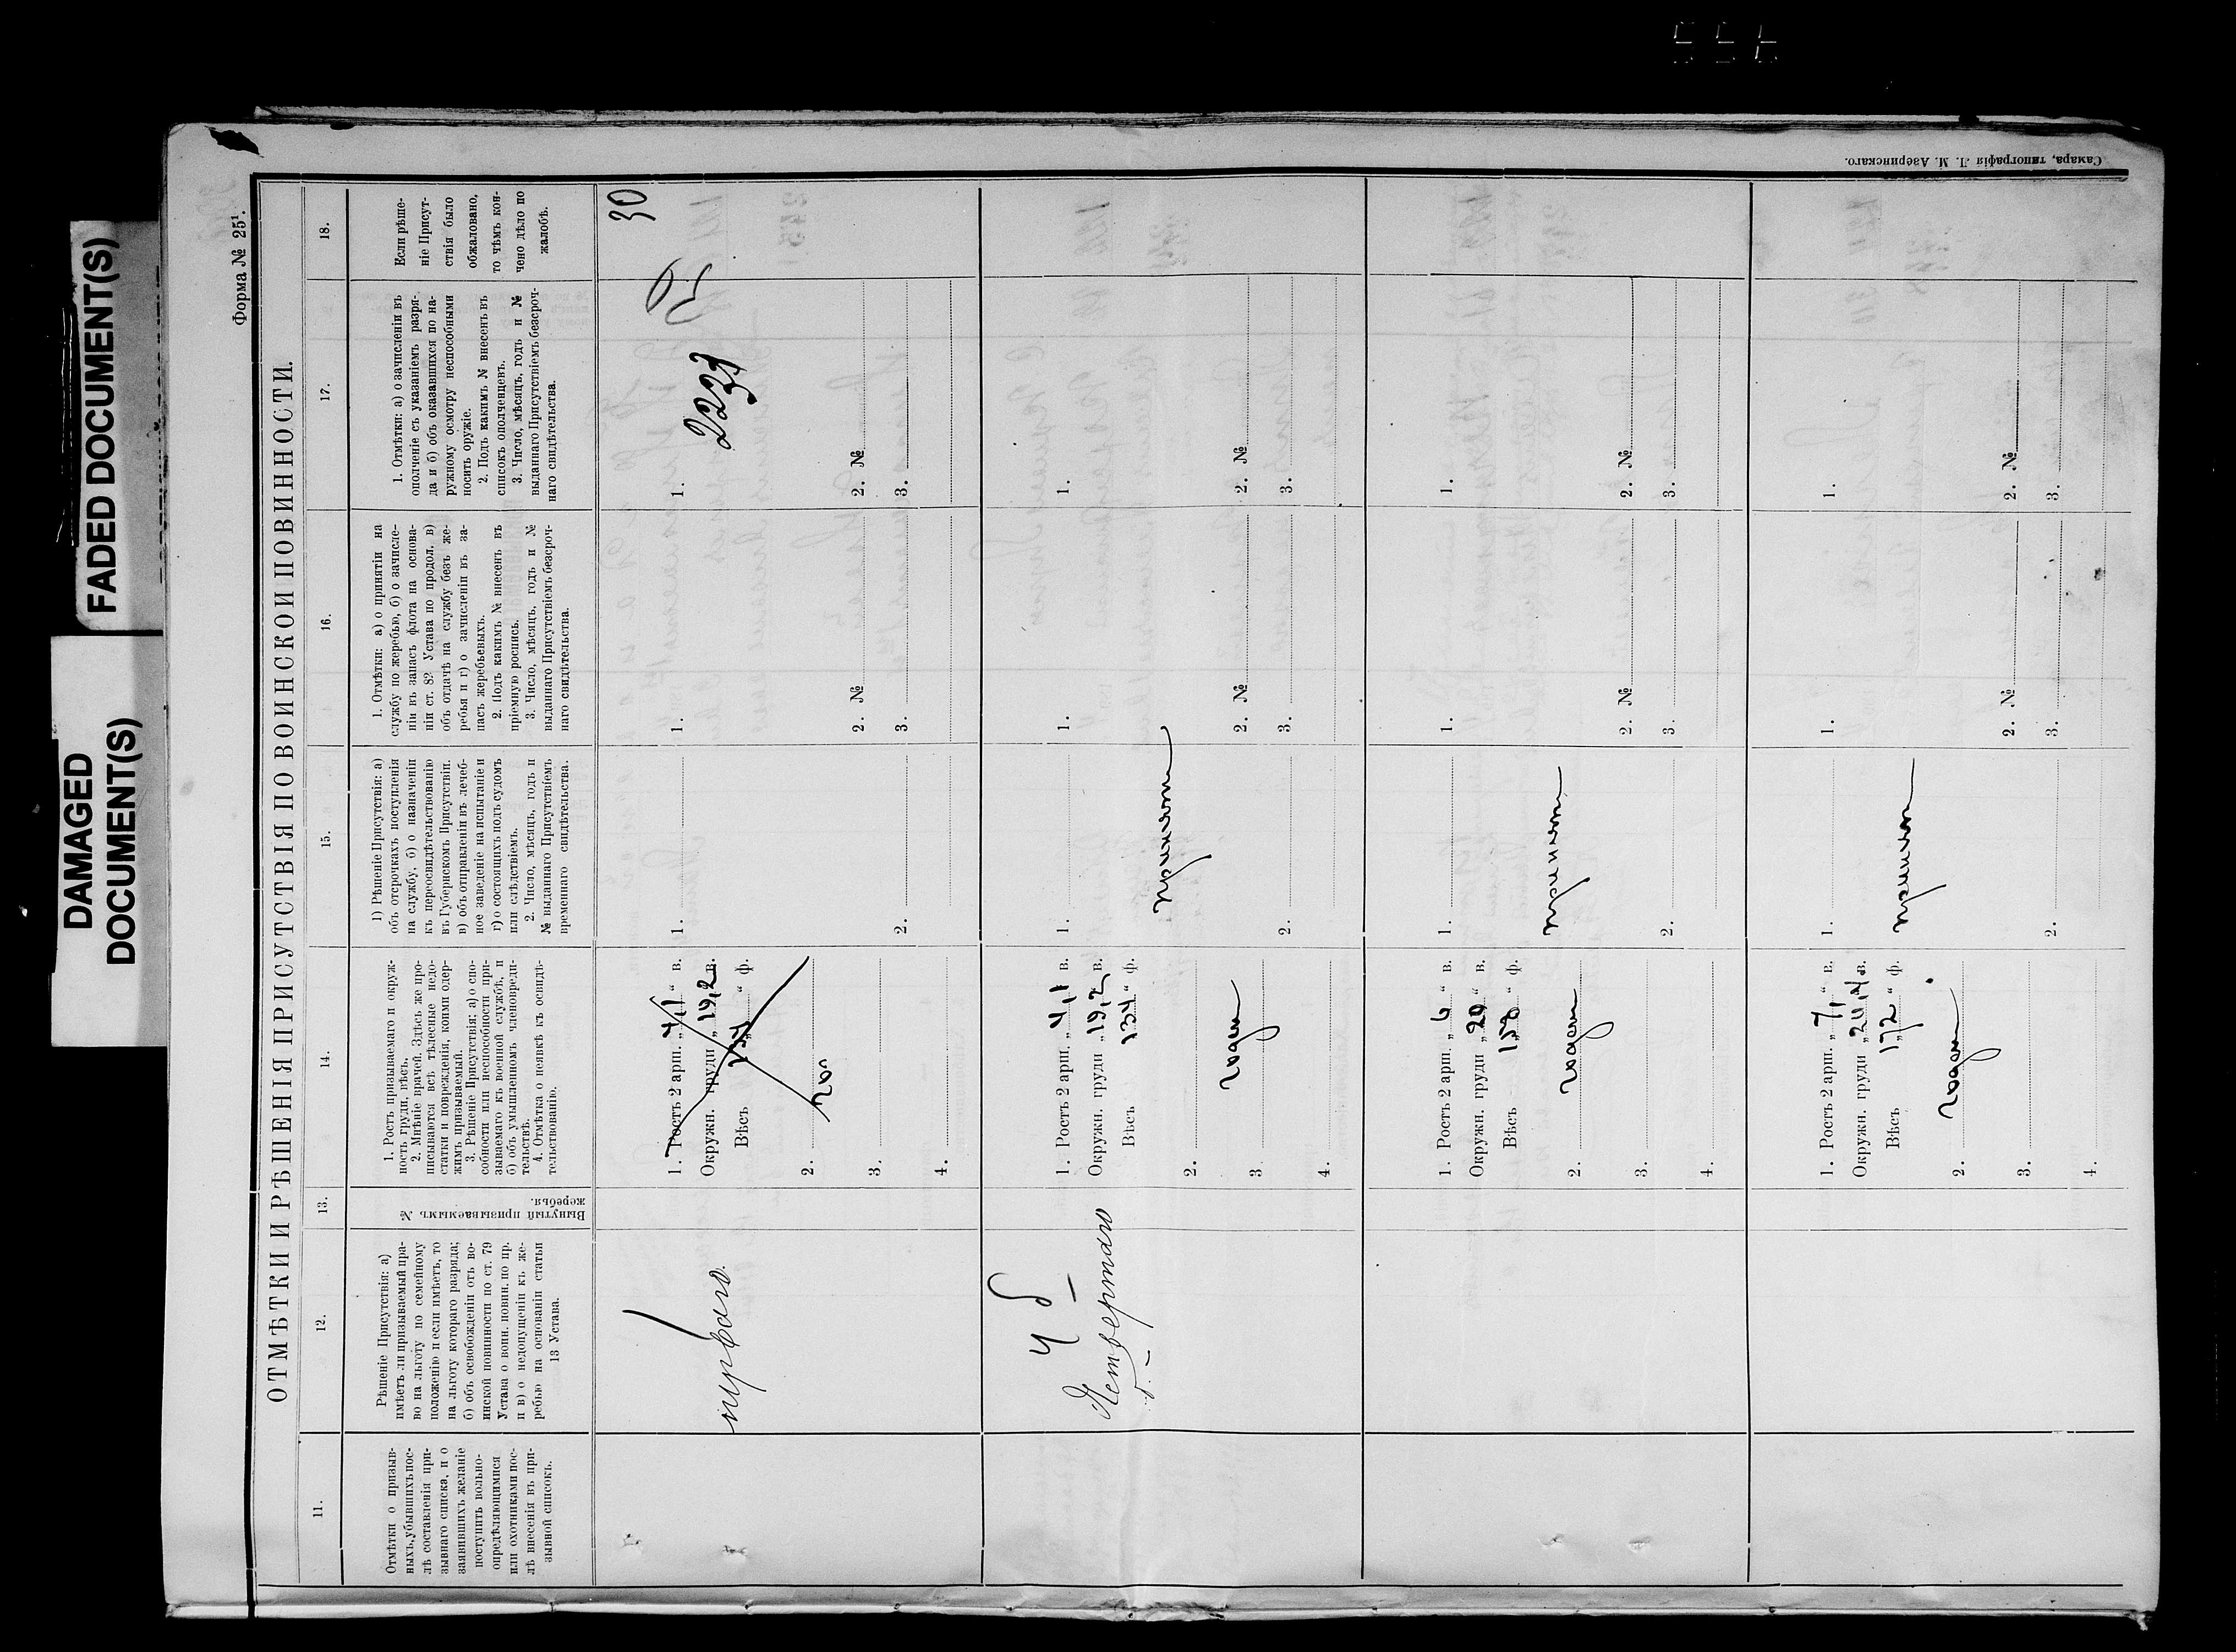 DAMAGED
DOCUMENT(S)
FADED DOCUMENT(S)
Форма № 25¹.
ОТМѢТКИ И РѢШЕНІЯ ПРИСУТСТВІЯ ПО ВОИНСКОЙ ПОВИННОСТИ.
11.
12.
13.
14.
15.
16.
17.
18.
Отмѣтки о призыв-
ныхъ, убывшихъ пос-
лѣ составленія при-
зывнаго списка, и о
заявившихъ желаніе
поступить вольно-
опредѣляющимися
или охотниками пос-
лѣ внесенія въ при-
зывной списокъ.
Рѣшеніе Присутствія: а)
имѣетъ ли призываемый пра-
во на льготу по семейному
положенію и если имѣетъ, то
на льготу котораго разряда;
б) объ освобожденіи отъ во-
инской повинности по ст. 79
Устава о воин. повин. по пр.
и в) о недопущеніи къ же-
ребью на основаніи статьи
13 Устава.
Вынутый призываемымъ №
жеребья.
1. Ростъ призываемаго и окруж-
ность груди, вѣсъ.
2. Мнѣніе врачей. Здѣсь же про-
писываются всѣ тѣлесные недо-
статки и поврежденія, коими одер-
жимъ призываемый.
3. Рѣшеніе Присутствія; а) о спо-
собности или неспособности при-
зываемаго къ военной службѣ, и
б) объ умышленномъ членовреди-
тельствѣ.
4. Отмѣтка о неявкѣ къ освидѣ-
тельствованію.
1) Рѣшеніе Присутствія: а)
объ отсрочкахъ поступленія
на службу, б) о назначеніи
къ переосвидѣтельствованію
въ Губернскомъ Присутствіи.
в) объ отправленіи въ лечеб-
ное заведеніе на испытаніе и
г) о состоящихъ подъ судомъ
или слѣдствіемъ.
2. Число, мѣсяцъ, годъ и
№ выданнаго Присутствіемъ
временнаго свидѣтельства.
1. Отмѣтки: а) о принятіи на
службу по жеребью, б) о зачисле-
ніи въ запасъ флота на основа-
ніи ст. 82 Устава по продол. в)
объ отдачѣ на службу безъ же-
ребья и г) о зачисленіи въ за-
пасъ жеребьевыхъ.
2. Подъ какимъ № внесенъ въ
пріемную роспись.
3. Число, мѣсяцъ, годъ и №
выданнаго Присутствіемъ безсроч-
наго свидѣтельства.
1. Отмѣтки: а) о зачисленіи въ
ополченіе съ указаніемъ разря-
да и б) объ оказавшихся по на-
ружному осмотру неспособными
носить оружіе.
2. Подъ какимъ № внесенъ въ
списокъ ополченцевъ.
3. Число, мѣсяцъ, годъ и №
выданнаго Присутствіемъ безсроч-
наго свидѣтельства.
Если рѣше-
ніе Присут-
ствія было
обжаловано,
то чѣмъ кон-
чено дѣло по
жалобѣ.
30
перваго.
1. Ростъ 2 арш. „4,1“ в.
Окружн. груди „19,2“ в.
Вѣсъ „134“ ф.
2. год
3.
4.
1.
2.
1.
2. №
3.
1. 2233
2. №
3.
4 б
Четвертаго
1. Ростъ 2 арш. „4,1 в.
Окружн. груди „19,2“ в.
Вѣсъ 134“ ф.
2.
годен
3.
4.
1.
принят
2.
1.
2. №
3.
1.
2. №
3.
1. Ростъ 2 арш. „6“ в.
Окружн. груди „20“ в.
Вѣсъ „158“ ф.
2. годен
3.
4.
1.
принят
2.
1.
2. №
3.
1.
2. №
3.
1. Ростъ 2 арш. „7,1“ в.
Окружн. груди „21,4“ в.
Вѣсъ „172“ ф.
2. годен
3.
4.
1.
принят
2.
1.
2. №
3.
1.
2. №
3.
Самара, типографія Л. М. Азеринскаго.